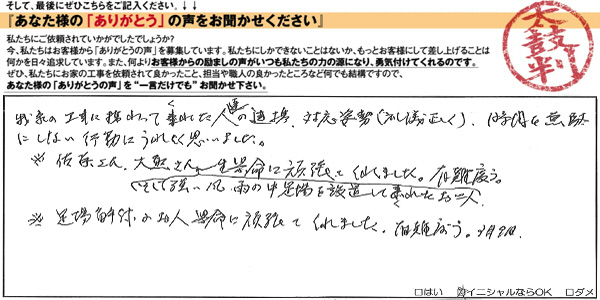 そして、最後にぜひこちらをご記入ください。↓↓
『あなた様の「ありがとう」の声をお聞かせください』
太鼓判
私たちにご依頼されていかがでしたでしょうか?
今、私たちはお客様から「ありがとうの声」を募集しています。私たちにしかできないことはないか、もっとお客様にして差し上げることは
何かを日々追求しています。また、何よりお客様からの励ましの声がいつも私たちの力の源になり、勇気付けてくれるのです。
ぜひ、私たちにお家の工事を依頼されて良かったこと、担当や職人の良かったところなど何でも結構ですので、
あなた様の「ありがとうの声」を“一言だけでも”お聞かせ下さい。
我家の工事に携わって くれた人達の 対応姿勢(礼儀正しく)、時間を無駄
にしない行動にうれしく思いました。
※ 佐藤さん、大熊さん、一生懸命に頑張ってくれました。有難度う。
そして強い風、雨の中足場を設置して くれたお二人
※ 足場解体のお人 懸命に頑張ってくれました。有難度う。
□はい イニシャルならOK □ダメ